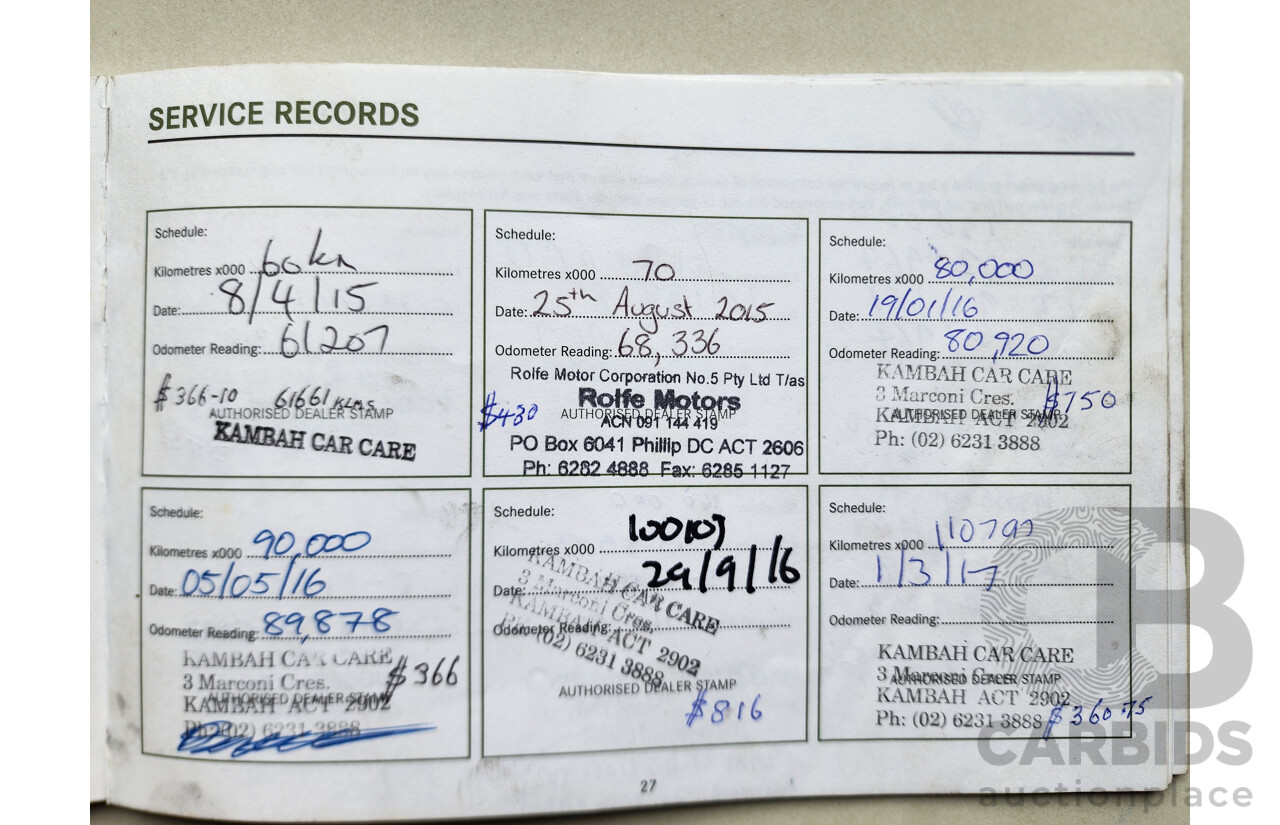 SERVICE RECORDS
Schedule:
Kilometres x000 60km
Date: 8/4/15
Odometer Reading: 61207
$366-10 61661 KLMS
AUTHORISED DEALER STAMP
KAMBAH CAR CARE
Schedule:
Kilometres x000 70
Date: 25th August 2015
Odometer Reading: 68,336
Rolfe Motor Corporation No.5 Pty Ltd T/as
Rolfe Motors
$480 AUTHORISED DEALER STAMP
ACN 091 144 419
PO Box 6041 Phillip DC ACT 2606
Ph: 6282 4888 Fax: 6285 1127
Schedule:
Kilometres x000 80,000
Date: 19/01/16
Odometer Reading: 80,920
KAMBAH CAR CARE
3 Marconi Cres. $750
AUTHORISED DEALER STAMP
KAMBAH ACT 2902
Ph: (02) 6231 3888
Schedule:
Kilometres x000 90,000
Date: 05/05/16
Odometer Reading: 89,878
KAMBAH CAR CARE
3 Marconi Cres. $366
AUTHORISED DEALER STAMP
KAMBAH ACT 2902
Ph: (02) 6231 3888
Schedule:
Kilometres x000 100107
Date: 29/9/16
Odometer Reading:
KAMBAH CAR CARE
3 Marconi Cres.
KAMBAH ACT 2902
Ph: (02) 6231 3888
AUTHORISED DEALER STAMP
$816
Schedule:
Kilometres x000 110797
Date: 1/3/17
Odometer Reading:
KAMBAH CAR CARE
3 Marconi Cres.
AUTHORISED DEALER STAMP
KAMBAH ACT 2902
Ph: (02) 6231 3888 $360.75
27
CARBIDS
auctionplace